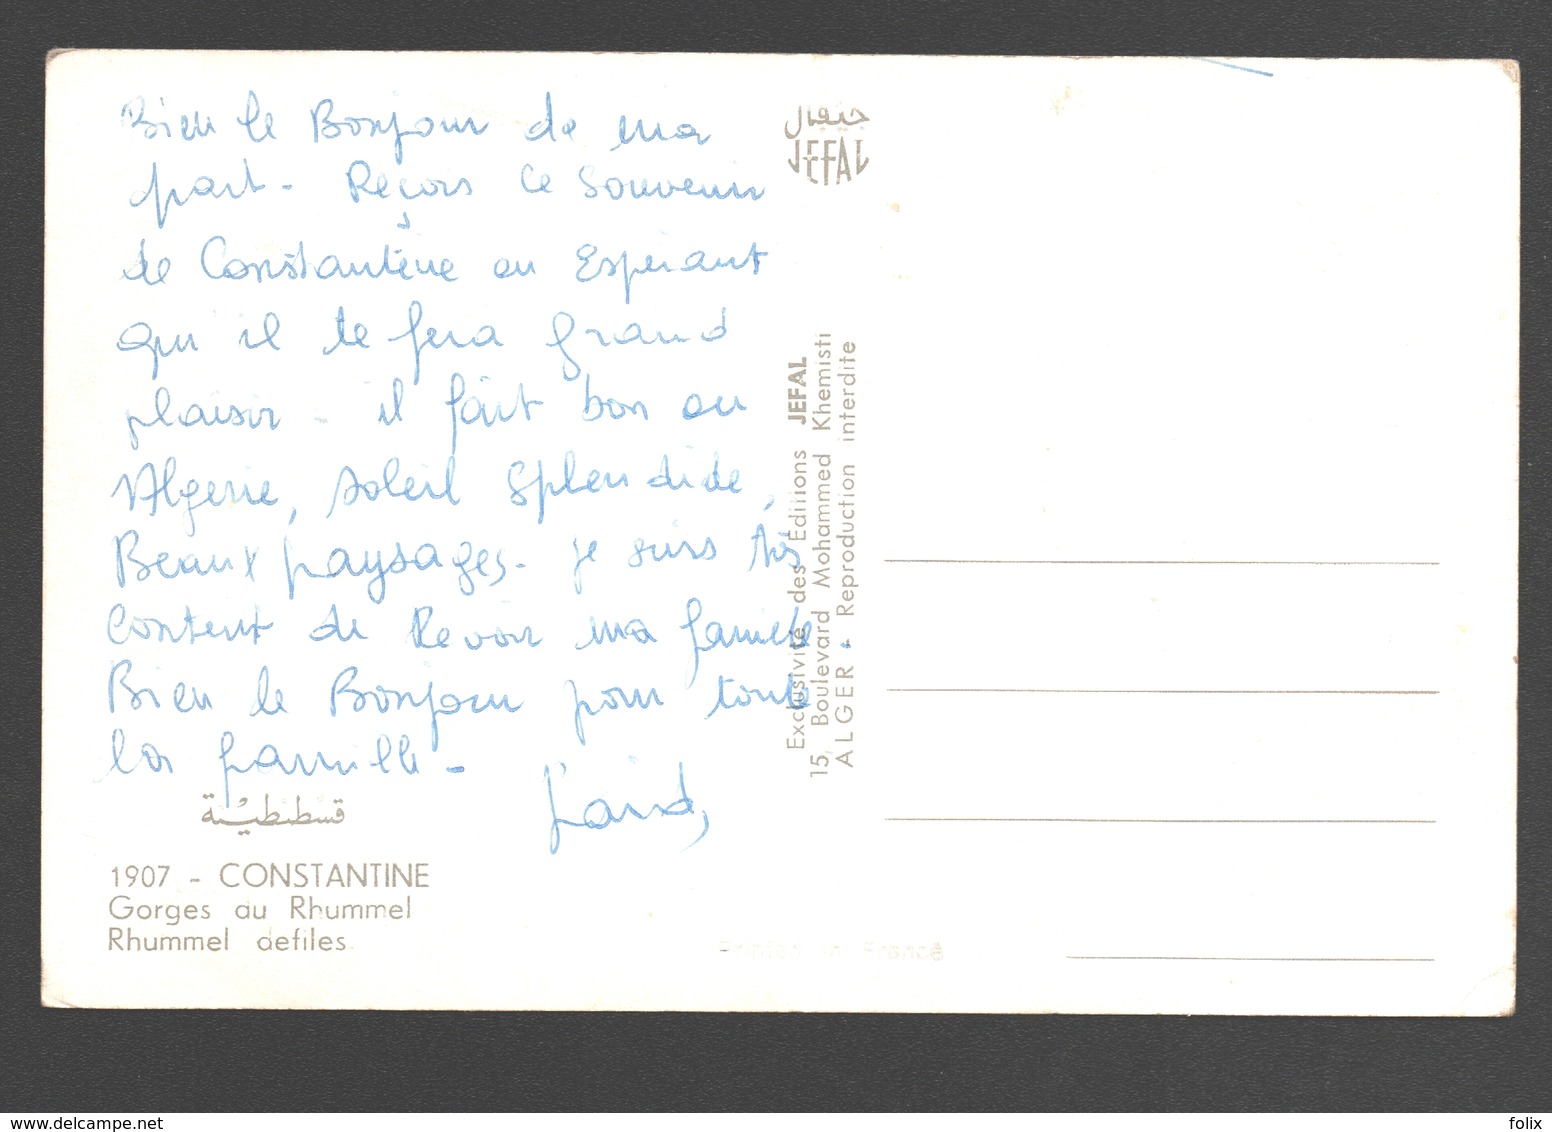 Bien le Bonjour de ma
part - Reçois ce souvenir
de Constantine en Espérant
qu il te fera grand
plaisir - il fait bon en
Algerie, soleil splendide,
Beaux paysages - je suis très
content de Revoir ma famille
Bien le Bonjour pour toute
la famille -
قسطنطينة
1907 - CONSTANTINE
Gorges du Rhummel
Rhummel defiles
جيفال
JEFAL
Exclusivité des Editions JEFAL
15, Boulevard Mohammed Khemisti
ALGER - Reproduction interdite
Printed in France
www.delcampe.net
folix